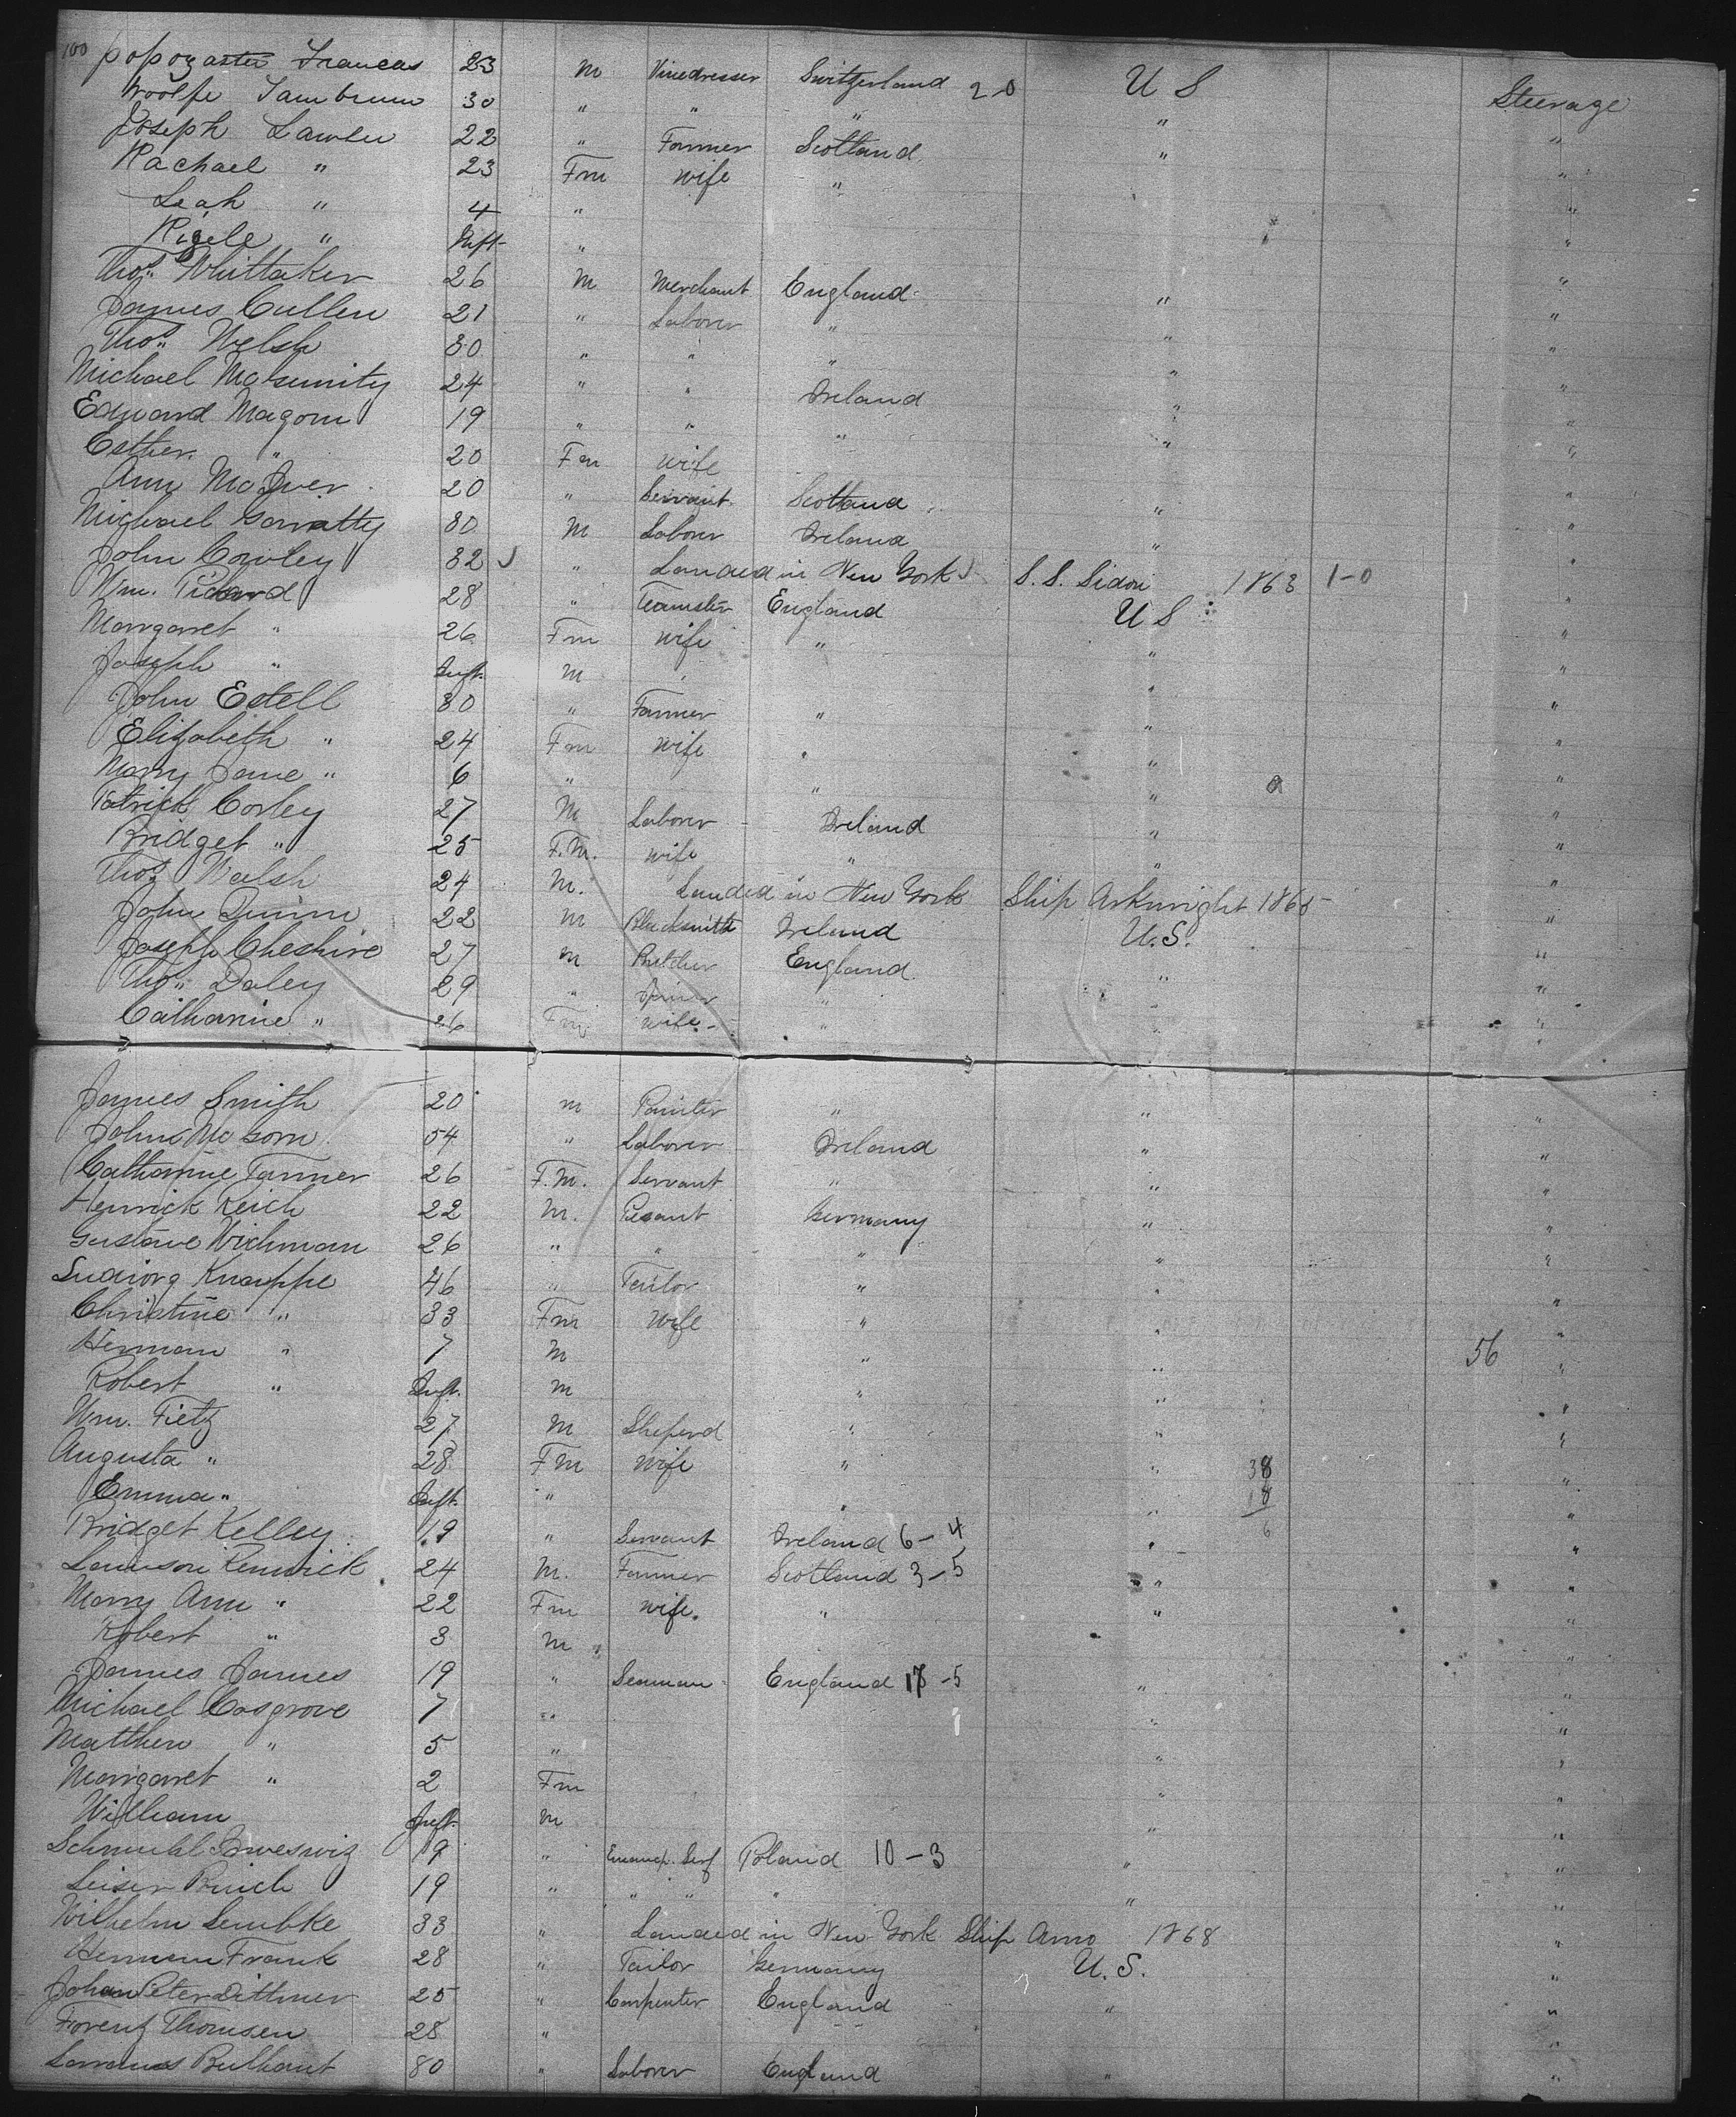 100 Francas 23 m Vinedresser Switzerland 2-0 U S Steerage
Woolfe 30 " " " " "
Joseph Lawler 22 " Farmer Scotland " "
Rachael " 23 Fm wife " "
Leah " 4 " "
" Inft " "
Thos. Whittaker 26 m Merchant England " "
James Cullen 21 " Laborer " " "
Thos. Welsh 30 " " " " "
Michael 24 " " Ireland " "
Edward Magorn 19 " " " " "
Esther " 20 Fm wife "
Ann McIver 20 " Servant Scotland " "
Michael Garratty 30 M Laborer Ireland " "
John Cowley 32 " Landed in New York S. S. Sidon 1863 1-0 "
Wm. 28 " Teamster England U S "
Margaret " 26 Fm wife " " "
Joseph " Inft. m " "
John Estell 30 " Farmer " " "
Elizabeth " 24 Fm wife " " "
Mary Jane " 6 " " " "
Patrick Corley 27 M Laborer Ireland " "
Bridget " 25 F.M. wife " " "
Thos. Walsh 24 M. Landed in New York Ship Arkwright 186 "
John Quinn 22 m Blacksmith Ireland U.S. "
Joseph Cheshire 27 m Butcher England " "
Thos. Daley 29 " Joiner " " "
Catharine " 26 Fm wife " " "
James Smith 20 m Painter " " "
John 54 " Laborer Ireland " "
Catharine Tanner 26 F.M. Servant " " "
Henrick Reich 22 M. Pesant Germany " "
Gustave Wichman 26 " " " " "
Ludiorg Knappe 46 " Tailor " " "
Christine " 33 Fm wife " " "
Herman " 7 M " " 56 "
Robert " Inft. m " " "
Wm. Fietz 27 M Sheperd " " "
Augusta " 28 Fm wife " " 38 "
Emma " Inft. " " " 18 "
Bridget Kelley 19 " Servant Ireland 6-4 " 6 "
Lawson Renwick 24 M. Farmer Scotland 3-5 " "
Mary Ann " 22 Fm wife " " "
Robert " 3 m "
James James 19 " Seaman England 17-5 " "
Michael Cosgrove 7 " " "
Matthew " 5 " " "
Margaret " 2 Fm " "
William Inft. m " "
Schmuhl 19 " Emancp. Serf Poland 10-3 " "
Leiser 19 " " " " " "
Wilhelm Lembke 33 " Landed in New York Ship Arno 1868 "
Herman Frank 28 " Tailor Germany U.S. "
Johan Peter Dittmer 25 " Carpenter England " "
Forentz Thomsen 28 " "
80 " Laborer England " "